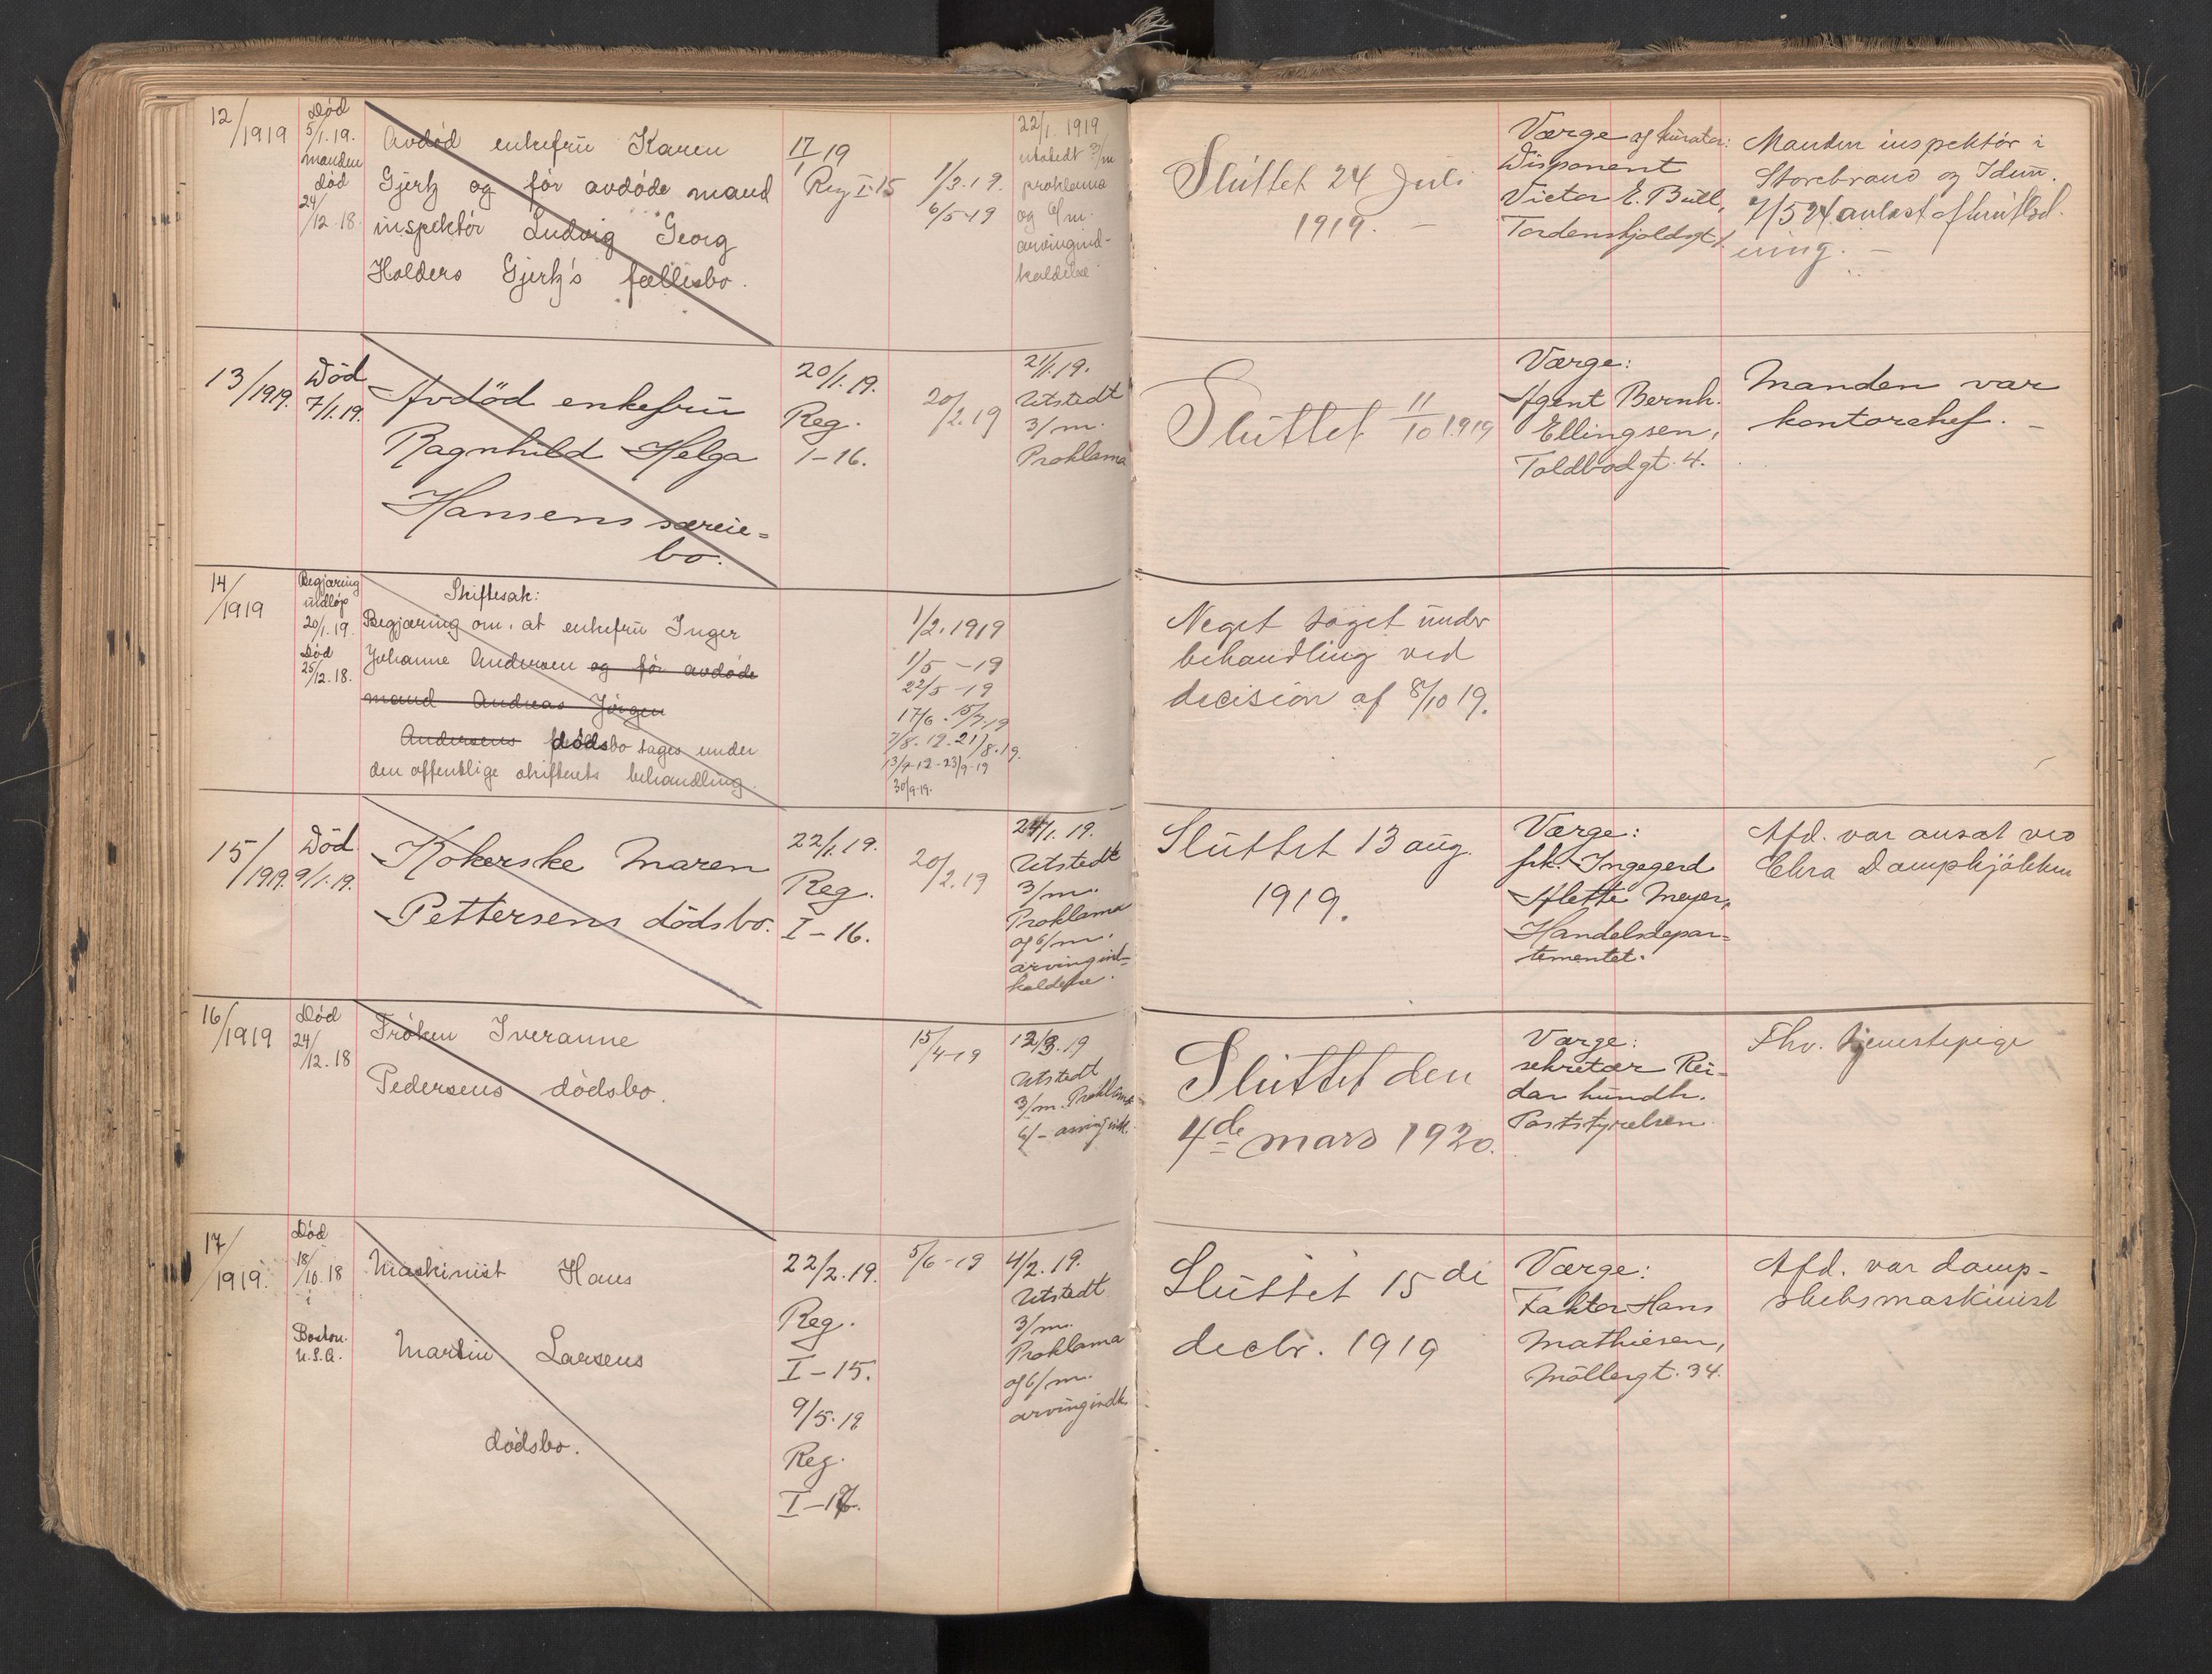 12/1919
Død
5/1.19.
manden
død
24/12.18.
Avdød enkefru Karen
Gjertz og før avdøde mand
inspektör Ludvig Georg
Holders Gjertz's fællesbo.
17/1 19
Reg I-15
1/3.19.
6/5-19
22/1. 1919
utstedt 3/m
proklama
og 6/m.
arvingind-
kaldelse
Sluttet 24 Juli
1919. —
Værge og kurator:
Disponent
Victor E. Bull,
Tordenskjoldsgt
Manden inspektör i
Storebrand og Idun.
7/5 24. anlæst
ning. —
13/1919.
Død
7/1.19.
Avdöd enkefru
Ragnhild Helga
Hansens særeie-
bo.
20/1.19.
Reg.
I-16.
20/2.19
21/1.19.
Utstedt
3/m.
Proklama
Sluttet 11/10 1919
Værge:
Agent Bernh.
Ellingsen,
Toldbodgt. 4.
Manden var
kontorchef. —
14/1919
Begjæring
indløp
20/1.19.
Død
25/12.18.
Skiftesak:
Begjæring om, at enkefru Inger
Johanne Andersen og før avdøde
mand Andreas Jörgen
Andersens dödsbo tages under
den offentlige skifterets behandling.
1/2.1919
1/5-19
22/5-19
17/6. 15/7.19
7/8.19-21/8.19.
13/9-12-23/9-19
30/9-19.
Neget søget under
behandling ved
decision af 8/10 19.
15/1919.
Död
9/1.19.
Kokerske Maren
Pettersens dödsbo.
22/1.19.
Reg.
I-16.
20/2.19
24/1.19.
Utstedt
3/m.
Proklama
og 6/m.
arvingind-
kaldelse.
Sluttet 13 aug.
1919.
Værge:
frk. Ingegerd
Alette Meyer,
Handelsdepar-
tementet.
Afd. var ansat ved
Chra Dampkjökken
16/1919
Død
24/12.18
Fröken Iveranne
Pedersens dödsbo.
15/4-19
12/3.19
Utstedt
3/m. Proklama
6/- arvingindk.
Sluttet den
4de mars 1920.
Værge:
sekretær Rei-
dar Lundh.
Poststyrelsen.
Fhv. tjenestepige
17/1919.
Død
18/10.18
i
Boston.
U.S.A.
Maskinist Hans
Martin Larsens
dödsbo.
22/2.19.
Reg.
I-15.
9/5.19
Reg.
I-16.
5/6-19
4/2.19.
Utstedt
3/m.
Proklama
og 6/m.
arvingindk.
Sluttet 15 de
decbr. 1919
Værge:
Faktor Hans
Mathiesen,
Möllergt. 34.
Afd. var damp-
skibsmaskinist